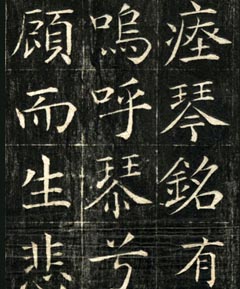 瘞琴銘有
嗚呼琴兮
顧而生悲